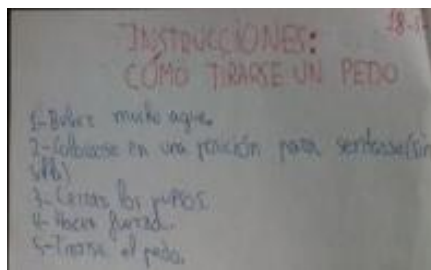 18-
INSTRUCCIONES:
CÓMO TIRARSE UN PEDO
1-Beber mucho agua.
2-Colocarse en una posición para sentarse(sin
3-Cerrar los puños.
4-Hacer fuerza.
5-Tirarse el pedo.